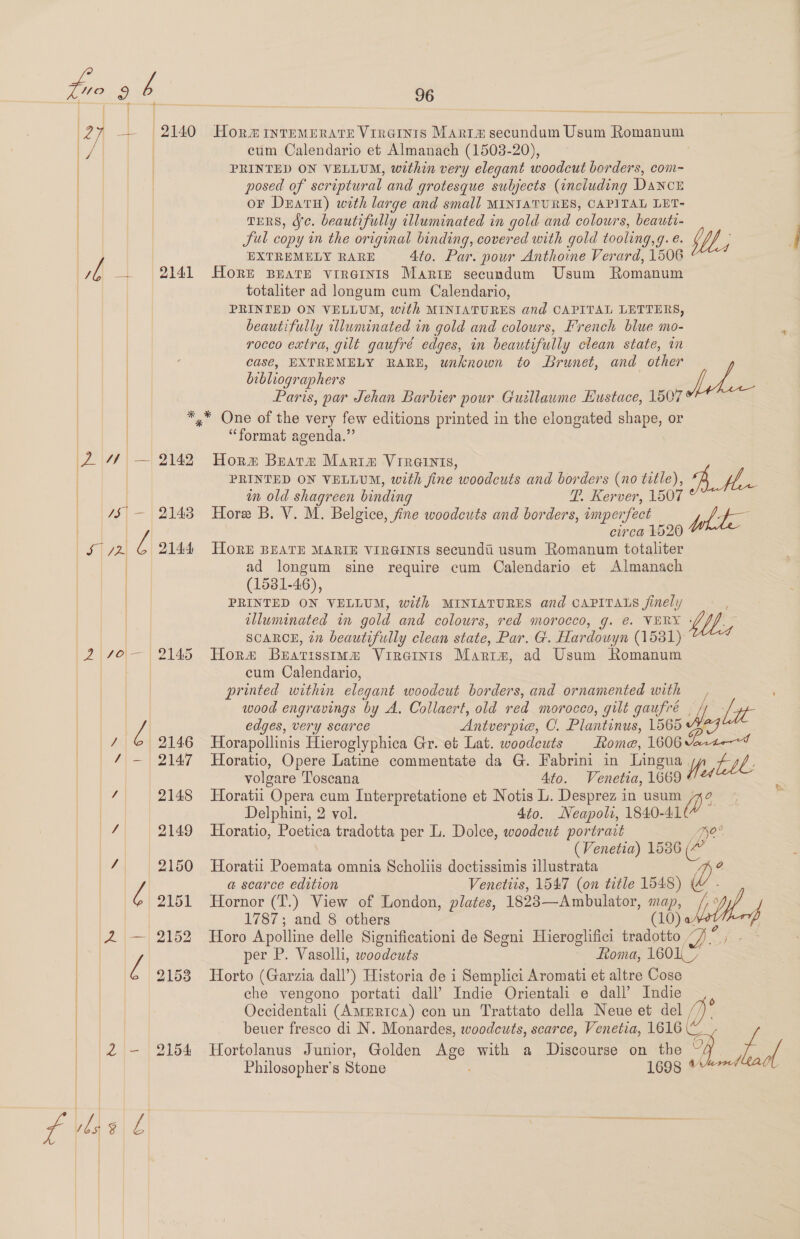 £110 9 6
96
27 — 2140 Horæ intemerate Virginis Mariæ secundum Usum Romanum
cum Calendario et Almanach (1503-20),
PRINTED ON VELLUM, within very elegant woodcut borders, com-
posed of scriptural and grotesque subjects (including DANCE
OF DEATH) with large and small MINIATURES, CAPITAL LET-
TERS, &c. beautifully illuminated in gold and colours, beauti-
ful copy in the original binding, covered with gold tooling, g. e.
EXTREMELY RARE 4to. Par. pour Anthoine Verard, 1506
16 — 2141 Horæ beate virginis Marie secundum Usum Romanum
totaliter ad longum cum Calendario,
PRINTED ON VELLUM, with MINIATURES and CAPITAL LETTERS,
beautifully illuminated in gold and colours, French blue mo-
rocco extra, gilt gaufré edges, in beautifully clean state, in
case, EXTREMELY RARE, unknown to Brunet, and other
bibliographers
Paris, par Jehan Barbier pour Guillaume Eustace, 1507
*** One of the very few editions printed in the elongated shape, or
“format agenda.”
2 11 — 2142 Horæ Beatæ Mariæ Virginis,
PRINTED ON VELLUM, with fine woodcuts and borders (no title),
in old shagreen binding T. Kerver, 1507
15 — 2143 Horæ B. V. M. Belgice, fine woodcuts and borders, imperfect
circa 1520 White
5 12 6 2144 Horæ beate marie virginis secundū usum Romanum totaliter
ad longum sine require cum Calendario et Almanach
(1531-46),
PRINTED ON VELLUM, with MINIATURES and CAPITALS finely
illuminated in gold and colours, red morocco, g. e. VERY
SCARCE, in beautifully clean state, Par. G. Hardouyn (1531)
2 10 — 2145 Horæ Beatissimæ Virginis Mariæ, ad Usum Romanum
cum Calendario,
printed within elegant woodcut borders, and ornamented with
wood engravings by A. Collaert, old red morocco, gilt gaufré
edges, very scarce Antverpiæ, C. Plantinus, 1565 Hazlitt
1 6 2146 Horapollinis Hieroglyphica Gr. et Lat. woodcuts Romæ, 1606
1 — 2147 Horatio, Opere Latine commentate da G. Fabrini in Lingua
volgare Toscana 4to. Venetia, 1669
1 2148 Horatii Opera cum Interpretatione et Notis L. Desprez in usum
Delphini, 2 vol. 4to. Neapoli, 1840-41
1 2149 Horatio, Poetica tradotta per L. Dolce, woodcut portrait
(Venetia) 1536
1 2150 Horatii Poemata omnia Scholiis doctissimis illustrata
a scarce edition Venetiis, 1547 (on title 1548)
6 2151 Hornor (T.) View of London, plates, 1823—Ambulator, map,
1787; and 8 others (10)
2 — 2152 Horo Apolline delle Significationi de Segni Hieroglifici tradotto
per P. Vasolli, woodcuts Roma, 1601
6 2153 Horto (Garzia dall’) Historia de i Semplici Aromati et altre Cose
che vengono portati dall’ Indie Orientali e dall’ Indie
Occidentali (AMERICA) con un Trattato della Neue et del
beuer fresco di N. Monardes, woodcuts, scarce, Venetia, 1616
2 — 2154 Hortolanus Junior, Golden Age with a Discourse on the
Philosopher's Stone 1698